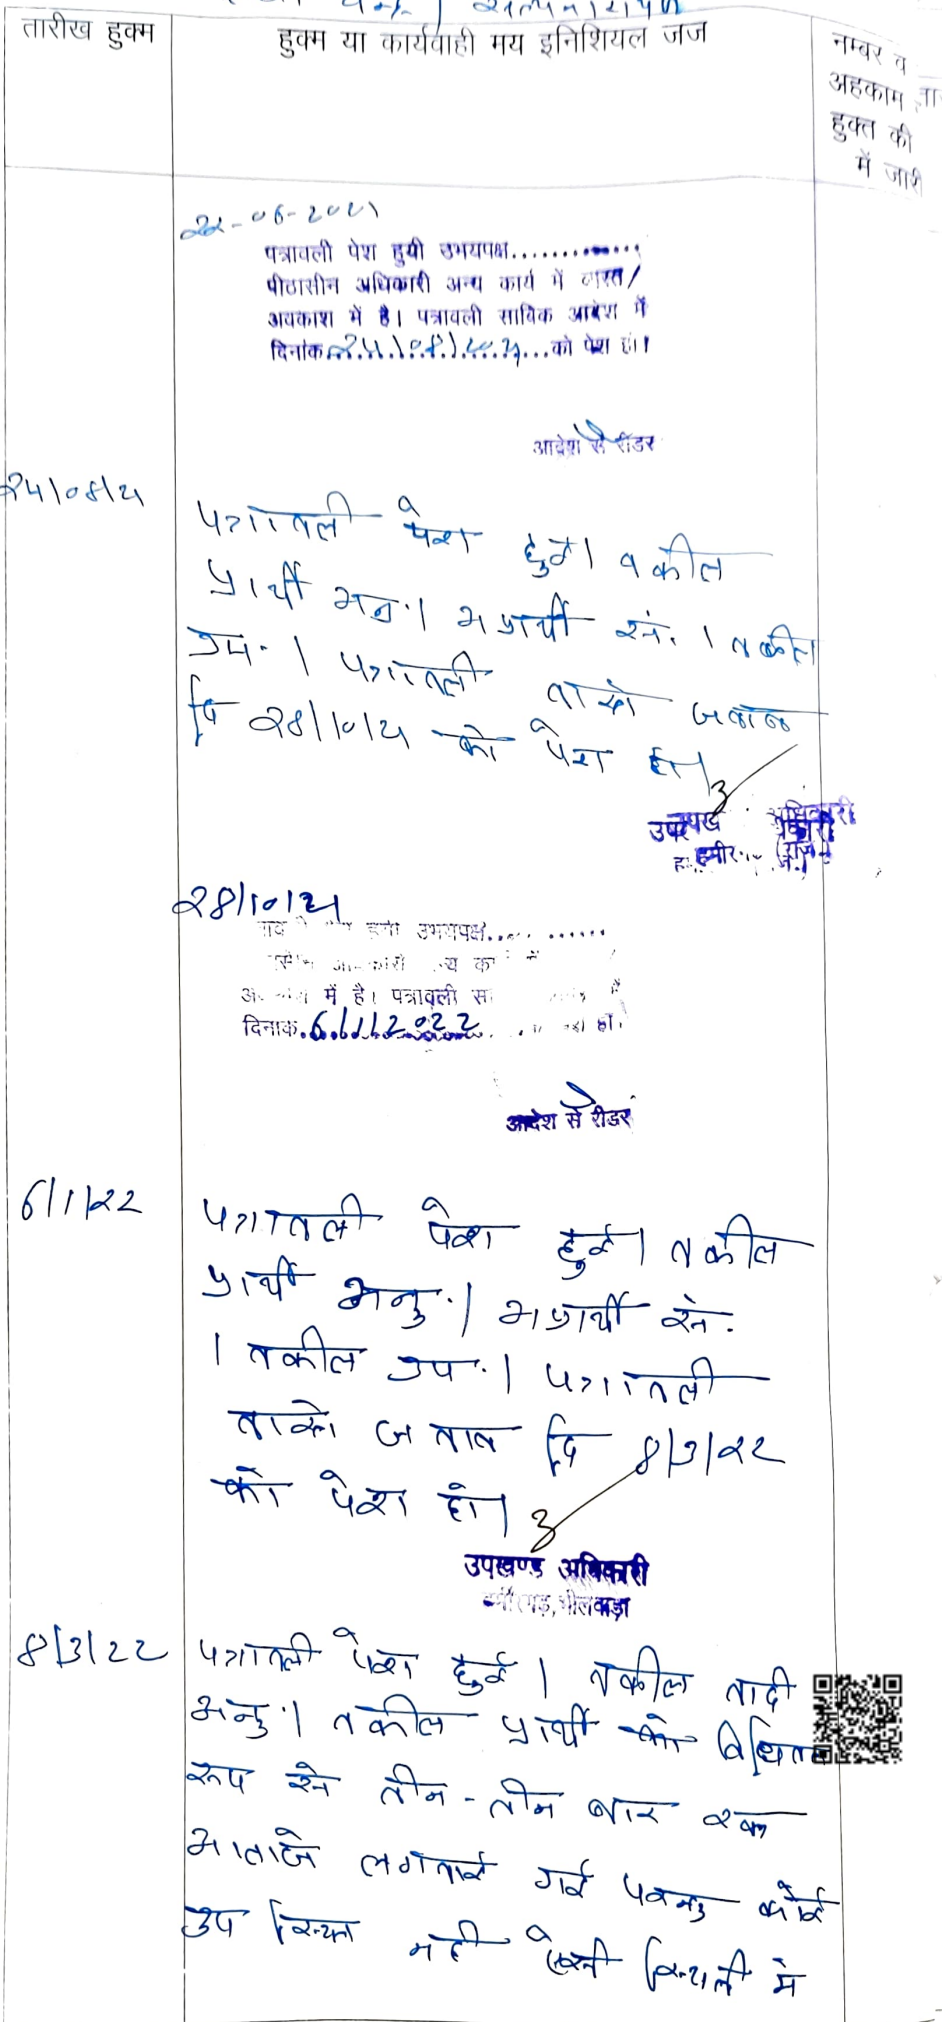 तारीख हुक्म
हुक्म या कार्यवाही मय इनिशियल जज
नम्बर व
अहकाम
हुक्त की
में जारी
22-06-2021
पत्रावली पेश हुयी उभयपक्ष............
पीठासीन अधिकारी अन्य कार्य में व्यस्त/
अवकाश में है। पत्रावली साविक आदेश में
दिनांक 24/08/2021...को पेश हो।
आदेश से रीडर
24/08/21
पत्रावली पेश हुई। वकील
प्रार्थी अनु.। अप्रार्थी सं. । वकील
उप.। पत्रावली वास्ते जवाब
दि 28/10/21 को पेश हो।
उपखण्ड अधिकारी
28/10/21
उभयपक्ष...........
में है। पत्रावली
दिनांक.6/1/2022
आदेश से रीडर
6/1/22
पत्रावली पेश हुई। वकील
प्रार्थी अनु.। अप्रार्थी सं.
। वकील उप.। पत्रावली
वास्ते जवाब दि 8/3/22
को पेश हो।
उपखण्ड अधिकारी
हमीरगढ़,भीलवाड़ा
8/3/22
पत्रावली पेश हुई। वकील वादी
अनु.। वकील प्रार्थी को विधिवत
रूप से तीन-तीन बार
आवाजे लगवाई गई परन्तु कोई
उपस्थित नही ऐसी स्थिती मे